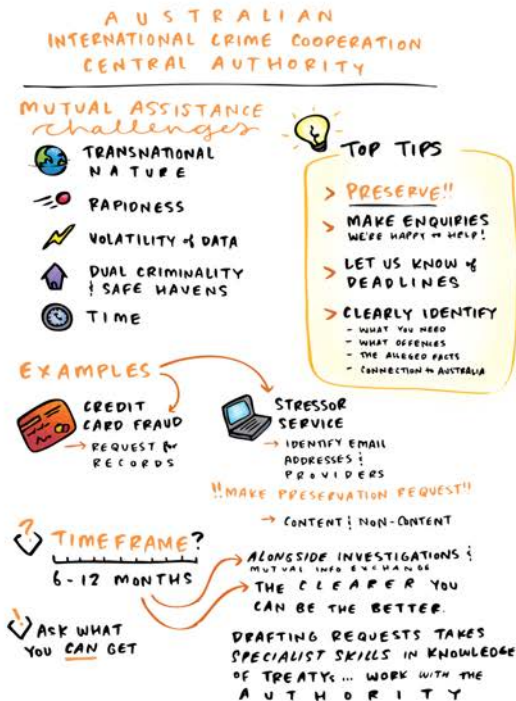 AUSTRALIAN
INTERNATIONAL CRIME COOPERATION
CENTRAL AUTHORITY
MUTUAL ASSISTANCE
challenges
TRANSNATIONAL
NATURE
RAPIDNESS
VOLATILITY of DATA
DUAL CRIMINALITY
& SAFE HAVENS
TIME
TOP TIPS
> PRESERVE!!
> MAKE ENQUIRIES
WE'RE HAPPY to HELP!
> LET US KNOW of
DEADLINES
> CLEARLY IDENTIFY
- WHAT YOU NEED
- WHAT OFFENCES
- THE ALLEGED FACTS
- CONNECTION to AUSTRALIA
EXAMPLES
CREDIT
CARD FRAUD
→ REQUEST for
RECORDS
STRESSOR
SERVICE
→ IDENTIFY EMAIL
ADDRESSES &
PROVIDERS
!!MAKE PRESERVATION REQUEST!!
→ CONTENT & NON-CONTENT
? TIMEFRAME?
6-12 MONTHS
ALONGSIDE INVESTIGATIONS &
MUTUAL INFO EXCHANGE
THE CLEARER YOU
CAN BE THE BETTER.
! ASK WHAT
YOU CAN GET
DRAFTING REQUESTS TAKES
SPECIALIST SKILLS IN KNOWLEDGE
OF TREATYS... WORK WITH THE
AUTHORITY